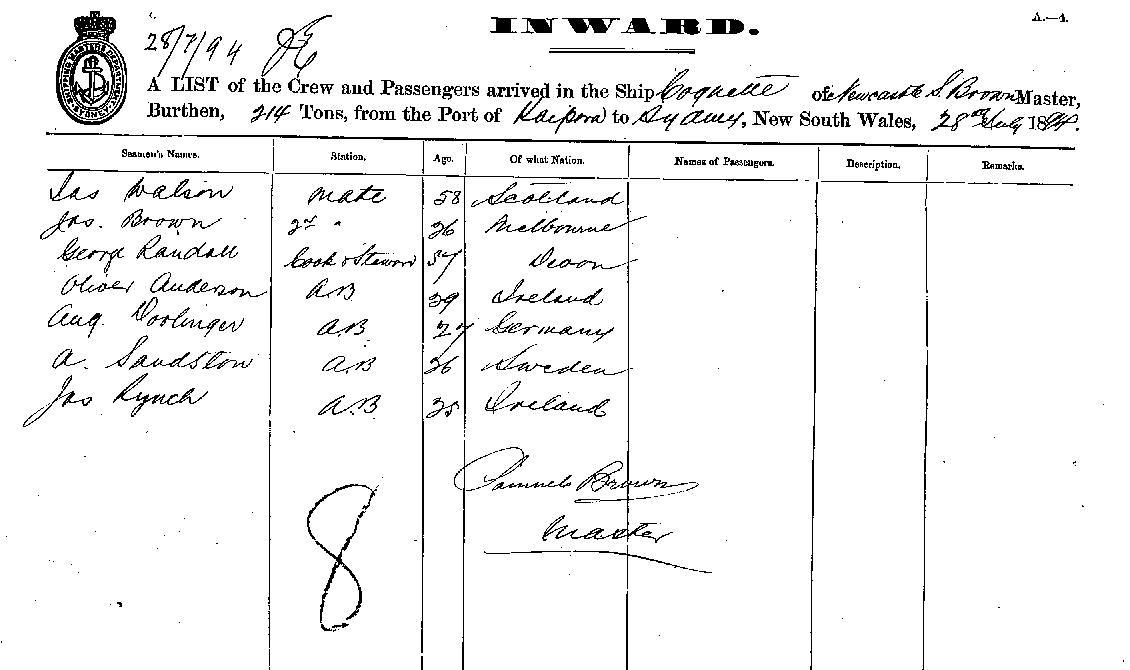 28/7/94
INWARD.
A.—4.
SHIPPING MASTERS DEPARTMENT SYDNEY
A LIST of the Crew and Passengers arrived in the Ship Coquette of Newcastle S Brown Master,
Burthen, 214 Tons, from the Port of Kaipara to Sydney, New South Wales, 28th July 1894.
Seamen's Names. Station. Age. Of what Nation. Names of Passengers. Description. Remarks.
Jas Watson Mate 58 Scotland
Jas. Brown 2d " 26 Melbourne
George Randall Cook & Steward 37 Devon
Oliver Anderson AB 39 Ireland
Aug. Doolinger AB 27 Germany
A. Sandston AB 26 Sweden
Jas Lynch AB 25 Ireland
Samuel Brown
Master
8